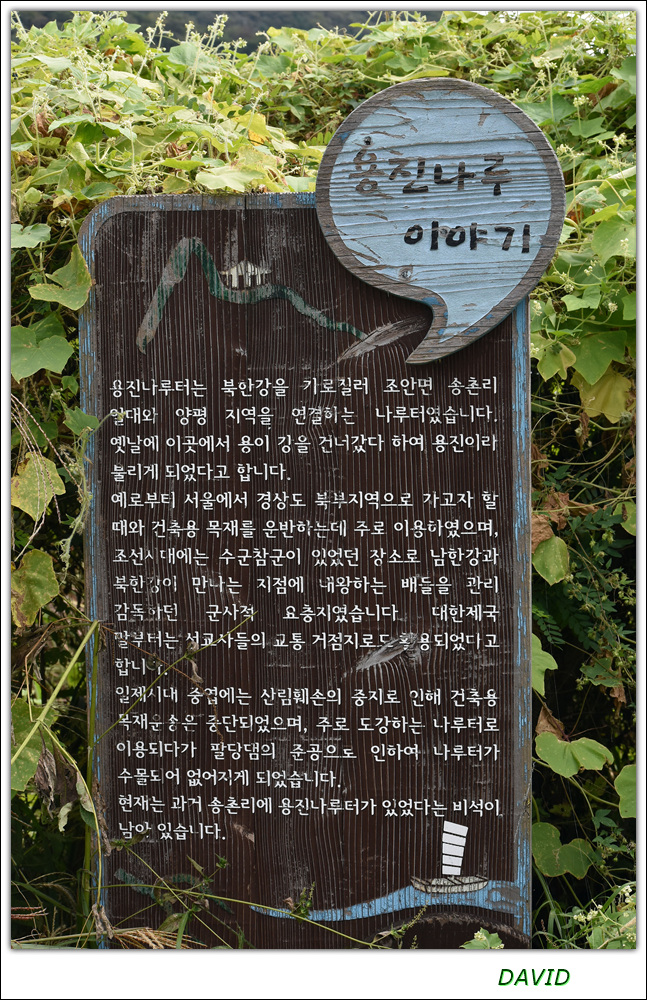 용진나루
이야기
용진나루터는 북한강을 가로질러 조안면 송촌리
일대와 양평 지역을 연결하는 나루터였습니다.
옛날에 이곳에서 용이 강을 건너갔다 하여 용진이라
불리게 되었다고 합니다.
예로부터 서울에서 경상도 북부지역으로 가고자 할
때와 건축용 목재를 운반하는데 주로 이용하였으며,
조선시대에는 수군참군이 있었던 장소로 남한강과
북한강이 만나는 지점에 내왕하는 배들을 관리
감독하던 군사적 요충지였습니다. 대한제국
말부터는 선교사들의 교통 거점지로도 활용되었다고
합니다.
일제시대 중엽에는 산림훼손의 중지로 인해 건축용
목재운송은 중단되었으며, 주로 도강하는 나루터로
이용되다가 팔당댐의 준공으로 인하여 나루터가
수몰되어 없어지게 되었습니다.
현재는 과거 송촌리에 용진나루터가 있었다는 비석이
남아 있습니다.
DAVID